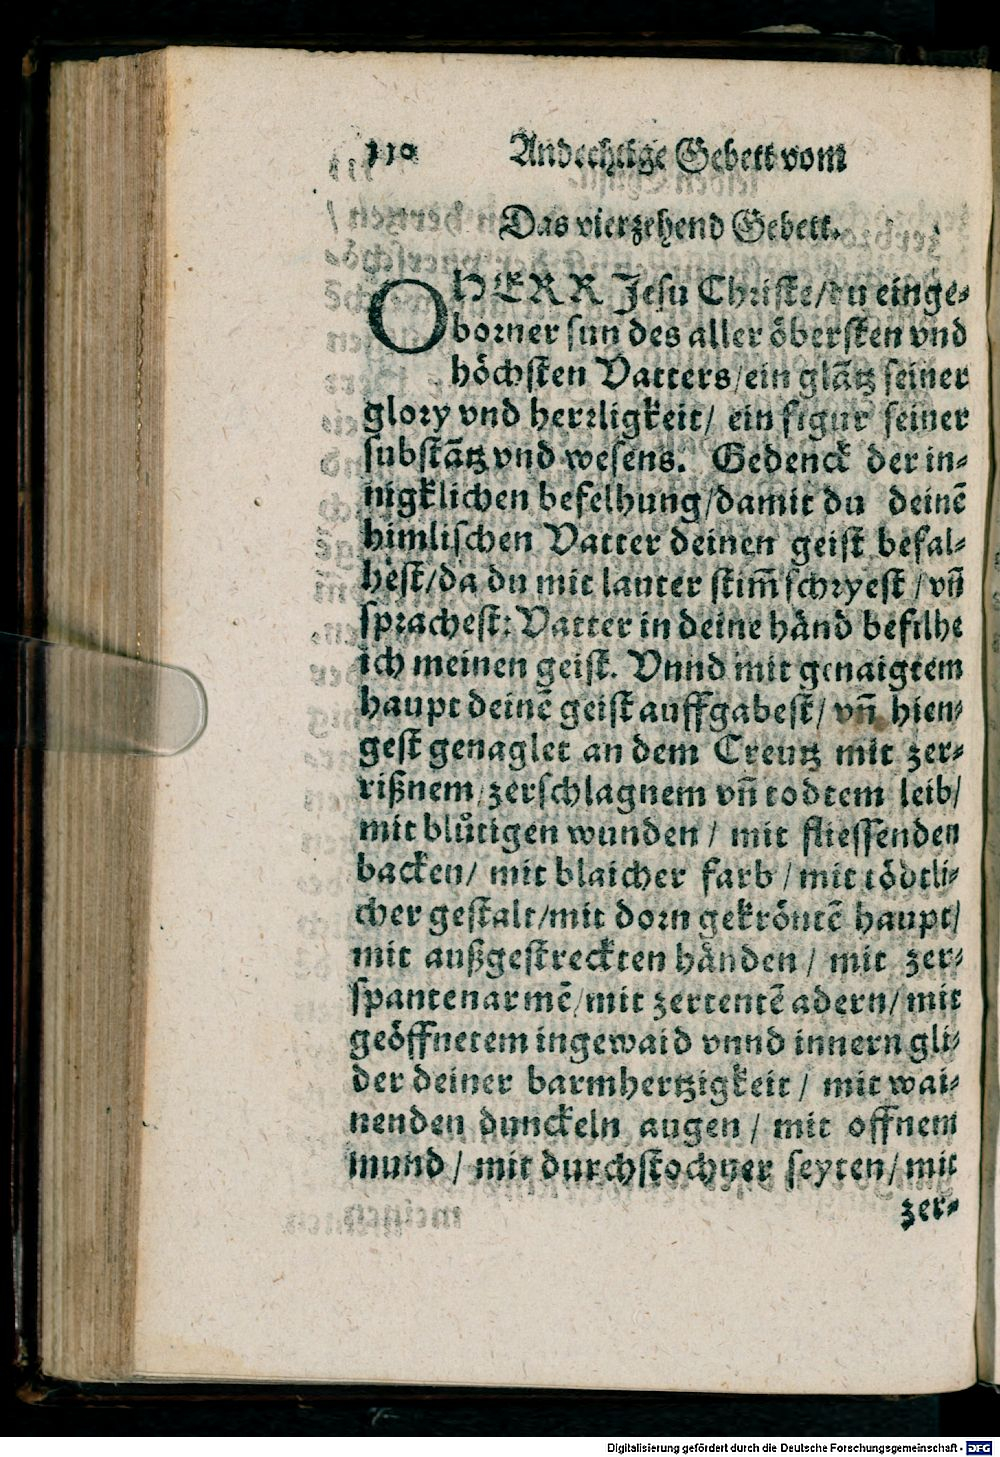 110 Andechtige Gebett vom
Das vierzehend Gebett.
O HERR Jesu Christe/du einge⸗
borner sun des aller öbersten vnd
höchsten Vatters/ein glãtz seiner
glory vnd herrligkeit/ ein figur seiner
substãtz vnd wesens. Gedenck der in⸗
nigklichen befelhung/damit du deinẽ
himlischen Vatter deinen geist befal⸗
hest/da du mit lauter stim̃ schryest/vñ
sprachest: Vatter in deine händ befilhe
ich meinen geist. Vnnd mit genaigtem
haupt deinẽ geist auffgabest/ vñ hien⸗
gest genaglet an dem Creutz mit zer⸗
rißnem/zerschlagnem vñ todtem leib/
mit blůtigen wunden/ mit fliessenden
backen/ mit blaicher farb/mit tödtli⸗
cher gestalt/mit dorn gekröntẽ haupt/
mit außgestreckten händen/ mit zer⸗
spanten armẽ/mit zertentẽ adern/mit
geöffnetem ingewaid vnnd innern gli⸗
der deiner barmhertzigkeit/ mit wai⸗
nenden dunckeln augen/ mit offnem
mund/ mit durchstochner seyten/mit
zer⸗
Digitalisierung gefördert durch die Deutsche Forschungsgemeinschaft - DFG